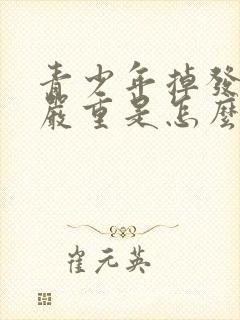 青少年掉發
嚴重是怎麼
崔元英